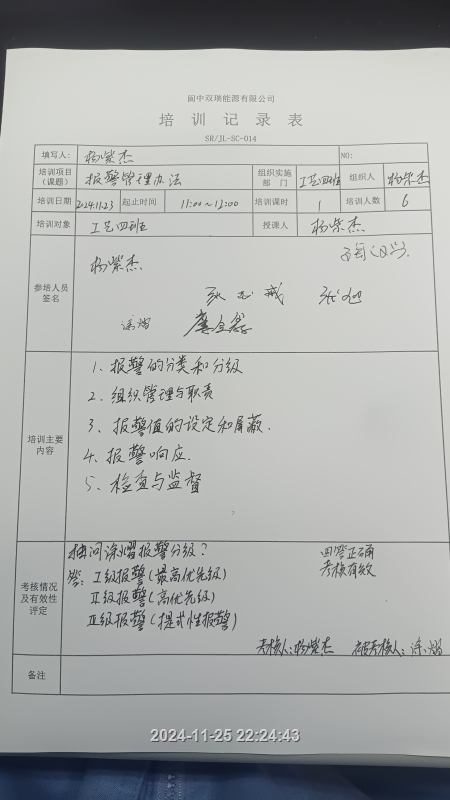 阆中双瑞能源有限公司
培训记录表
SR/JL-SC-014
填写人: 杨紫杰 NO:
培训项目(课题) 报警管理办法 组织实施部门 工艺四班 组织人 杨紫杰
培训日期 2024.11.23 起止时间 11:00~12:00 培训课时 1 培训人数 6
培训对象 工艺四班 授课人 杨紫杰
参培人员签名
杨紫杰
张
张旭
培训主要内容
1、报警的分类和分级
2、组织管理与职责
3、报警值的设定和屏蔽.
4、报警响应.
5、检查与监督
考核情况及有效性评定
抽问涂熠报警分级? 回答正确
答: Ⅰ级报警(最高优先级) 考核有效
Ⅱ级报警(高优先级)
Ⅲ级报警(提示性报警)
考核人:杨紫杰 被考核人:涂熠
备注
2024-11-25 22:24:43